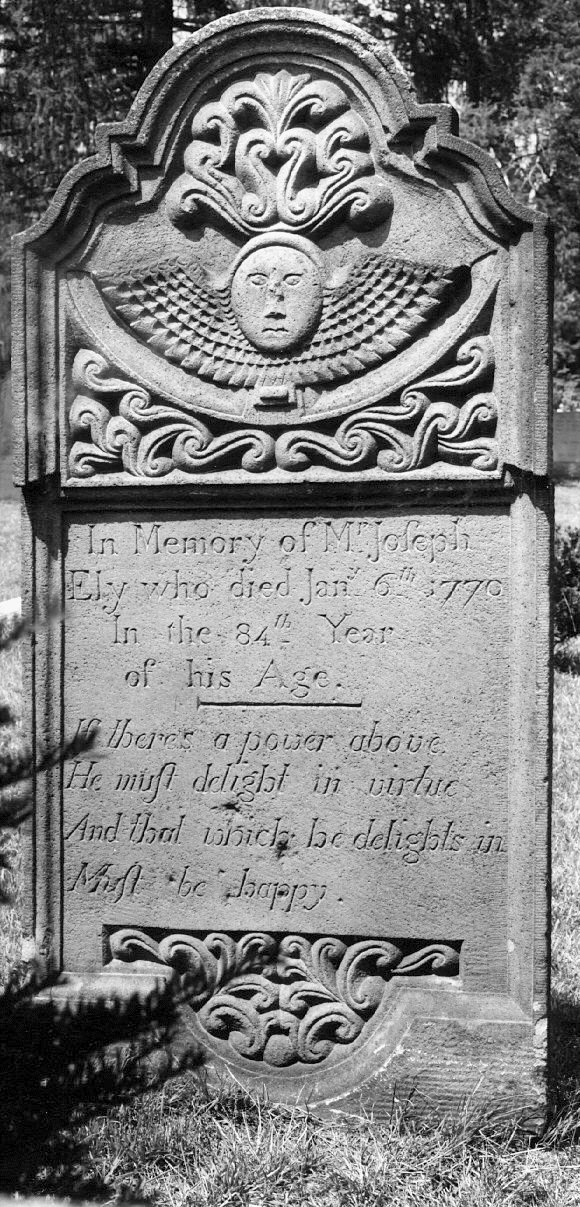 In Memory of Mʳ. Joſeph
Ely who died Janʸ. 6ᵗʰ. 1770
In the 84ᵗʰ. Year
of his Age.
If there's a power above
He muſt delight in virtue
And that which he delights in
Muſt be happy.